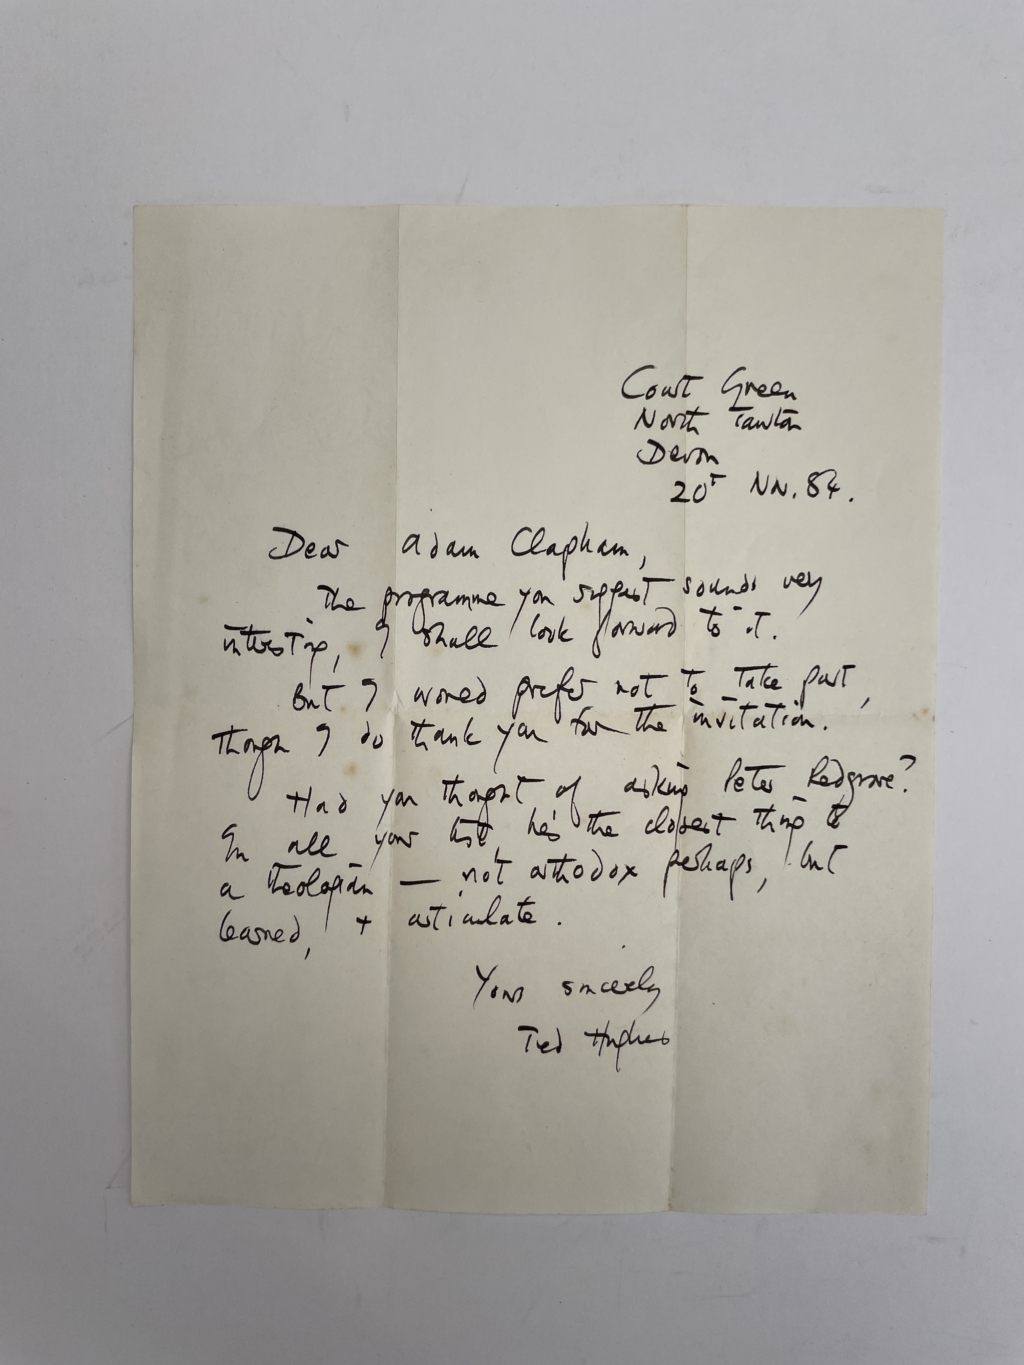 Court Green
North Tawton
Devon
20th Nov. 84.
Dear Adam Clapham,
The programme you suggest sounds very
interesting, I shall look forward to it.
But I would prefer not to take part,
though I do thank you for the invitation.
Had you thought of asking Peter Redgrove?
In all your list, he's the closest thing to
a theologian — not orthodox perhaps, but
learned, + articulate.
Yours sincerely
Ted Hughes